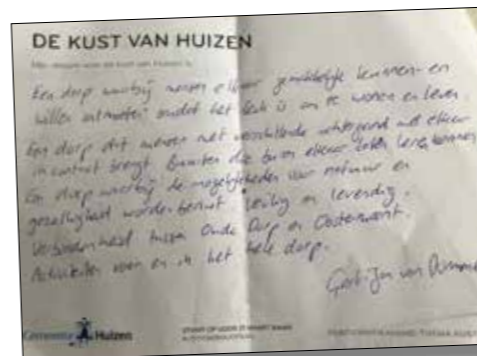 DE KUST VAN HUIZEN
Mijn droom voor de kust van Huizen is
Een dorp waarbij mensen elkaar gemakkelijk kunnen en
willen ontmoeten omdat het leuk is om te wonen en leven.
Een dorp dat mensen met verschillende achtergrond met elkaar
in contact brengt. Buurten die buren elkaar laten leren kennen
Een dorp waarbij de mogelijkheden voor natuur en
gezelligheid worden benut. Veilig en levendig.
Verbondenheid tussen Oude Dorp en Oostermeent.
Activiteiten voor en in het hele dorp.
Gert-Jan van
Gemeente Huizen